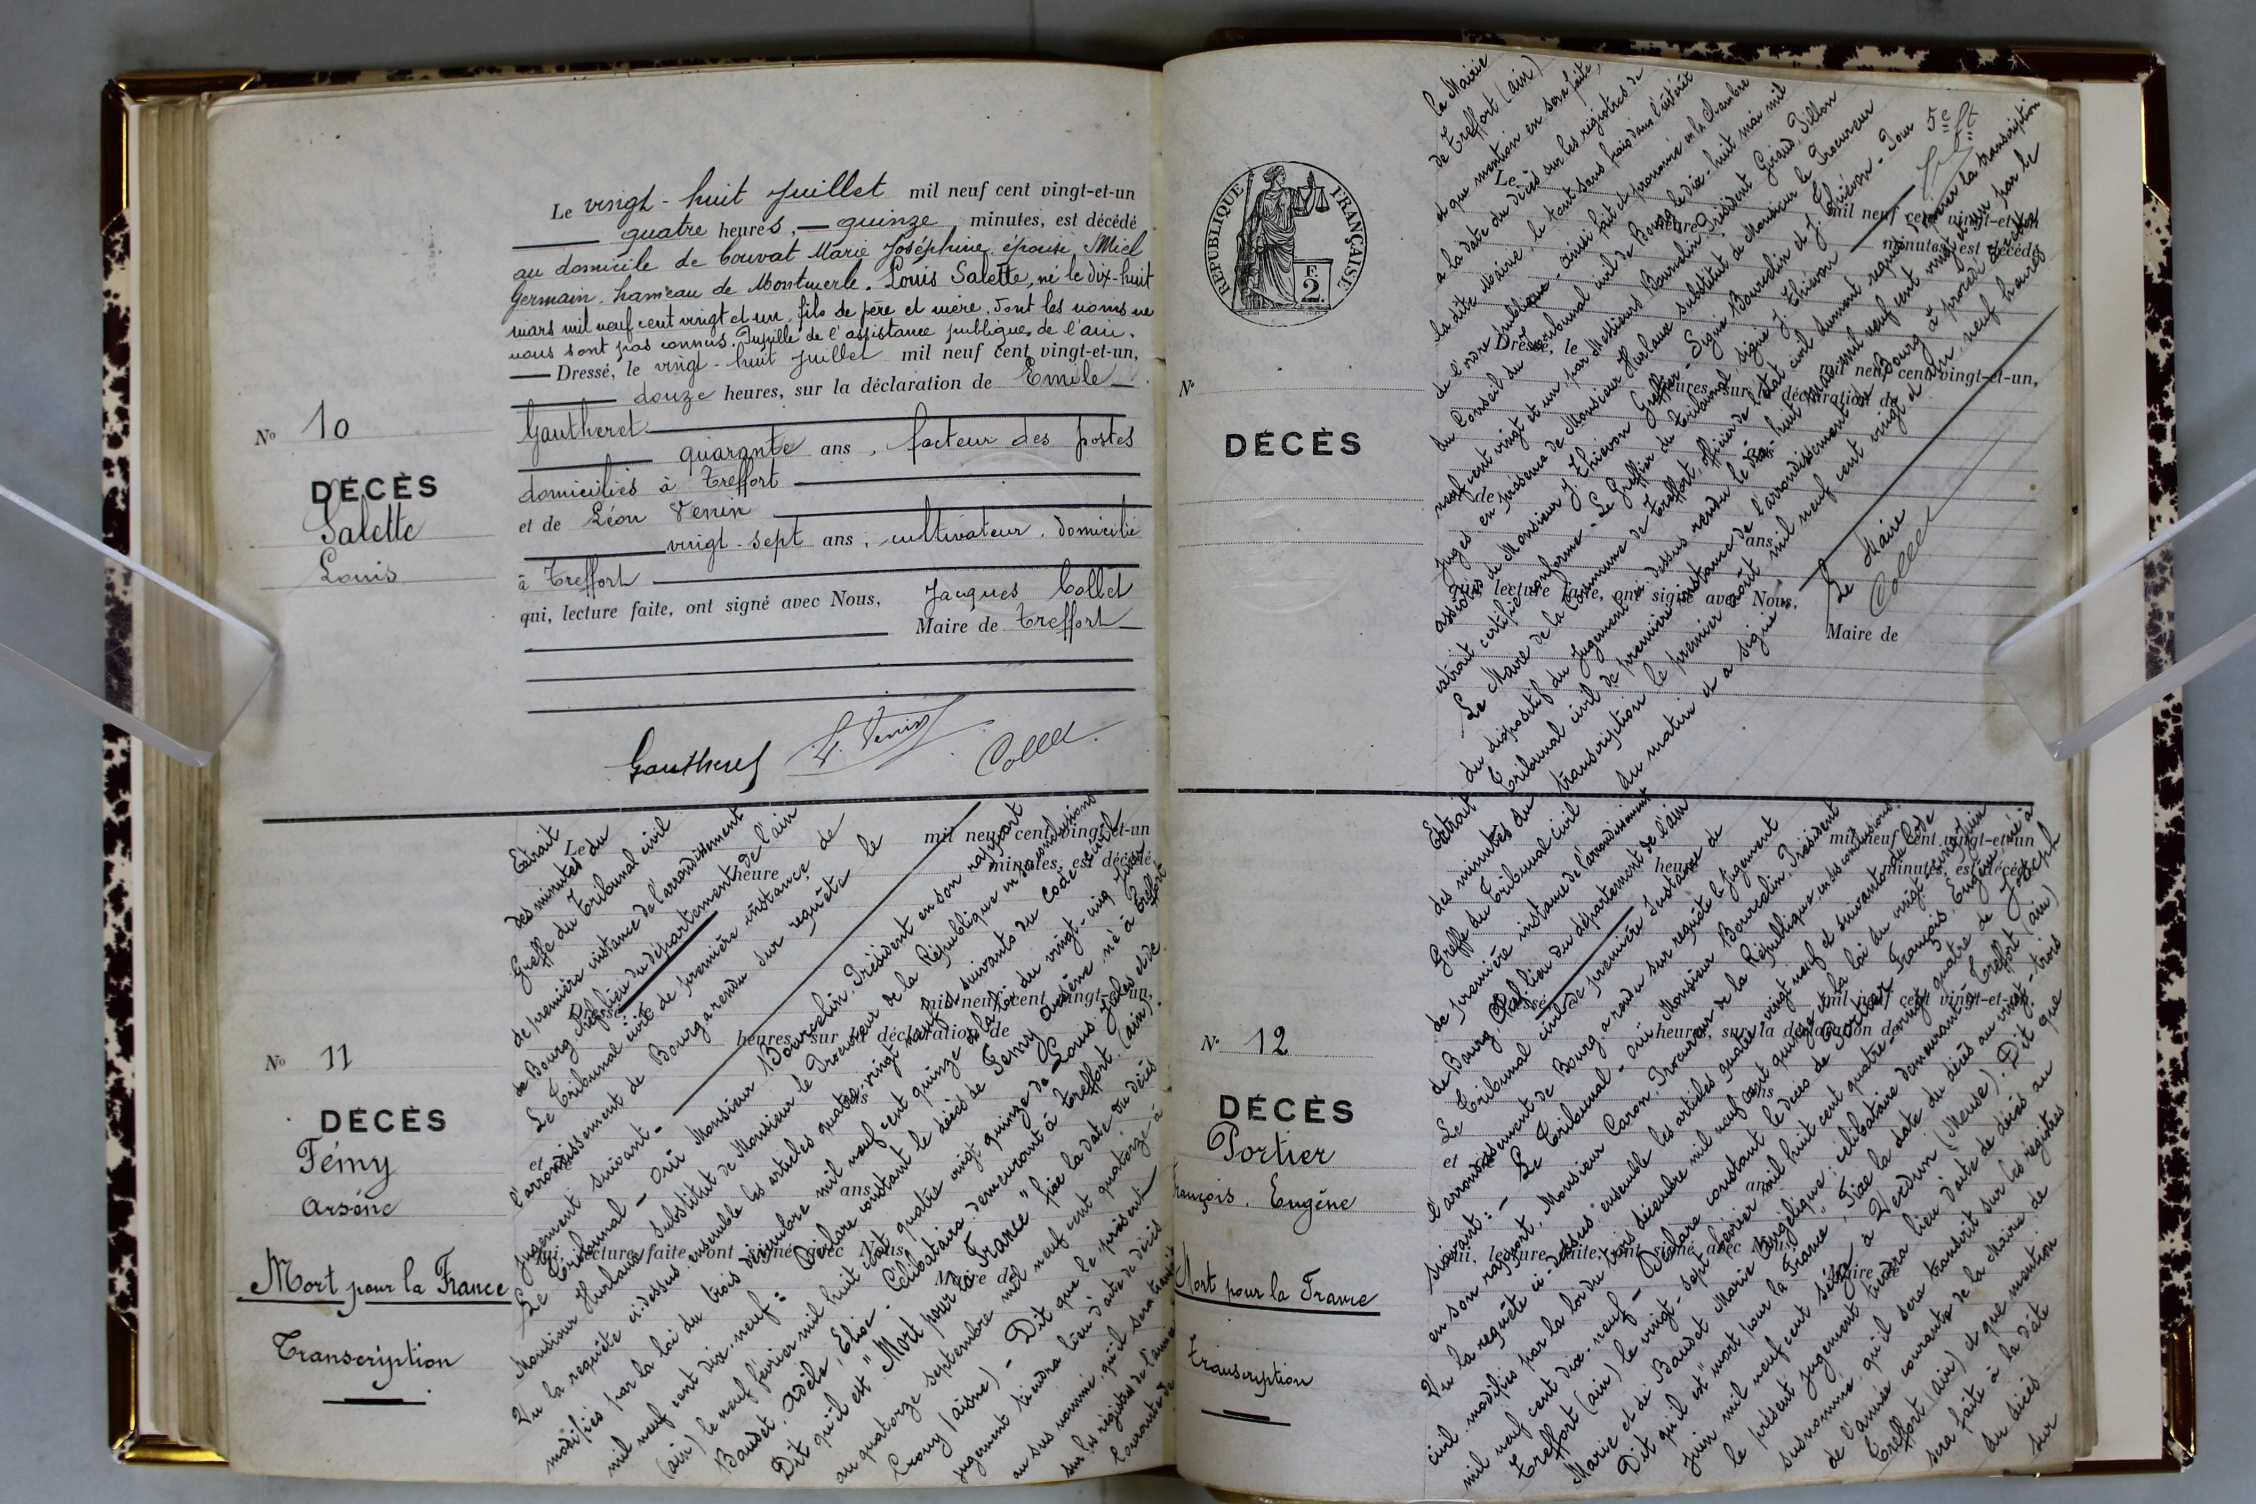 N° 10
DÉCÈS
Salette
Louis
Le vingt-huit juillet mil neuf cent vingt-et-un
quatre heures, quinze minutes, est décédé
au domicile de Couvat Marie Joséphine épouse Miel
Germain, hameau de Montmerle. Louis Salette, né le dix-huit
mars mil neuf cent vingt et un, fils de père et mère, dont les noms ne
nous sont pas connus. Pupille de l'assistance publique, de l'ain.
Dressé, le vingt-huit juillet mil neuf cent vingt-et-un,
douze heures, sur la déclaration de Emile
Gautheret
quarante ans, facteur des postes
domiciliés à Treffort
et de Léon Venin
vingt-sept ans, cultivateur, domicilié
à Treffort
qui, lecture faite, ont signé avec Nous, Jacques Collet
Maire de Treffort
Gautheret L. Venin Collet
N° 11
DÉCÈS
Fémy
Arsène
Mort pour la France
Transcription
Le mil neuf cent vingt-et-un
heure minutes, est décédé
mil neuf cent vingt-et-un,
heures, sur la déclaration de
ans
et de
ans
qui, lecture faite, ont signé avec Nous,
Maire de
Extrait
des minutes du
Greffe du Tribunal civil
de première instance de l'arrondissement
de Bourg chef-lieu du département de l'ain
Le Tribunal civil de première instance de
l'arrondissement de Bourg a rendu sur requête le
jugement suivant -
Le Tribunal - Ouï Monsieur Bourcelin, Président en son rapport
Monsieur Hurlaux Substitut de Monsieur le Procureur de la République en ses conclusions
Vu la requête ci-dessus ensemble les articles quatre-vingt neuf et suivants du Code civil
modifiés par la loi du trois décembre mil neuf cent quinze et la loi du vingt-cinq juin
mil neuf cent dix-neuf : Déclare constant le décès de Fémy Arsène né à Treffort
(ain) le neuf février mil huit cent quatre vingt quinze de Louis Jules et de
Baudet, Adèle, Elise. Célibataire demeurant à Treffort (ain).
Dit qu'il est "Mort pour la France" fixe la date du décès
au quatorze septembre mil neuf cent quatorze à
Crouy (aisne) - Dit que le présent
jugement tiendra lieu d'acte de décès
au sus nommé, qu'il sera transcrit
sur les registres de l'année
courante de
REPUBLIQUE FRANÇAISE
F.
2.
N°
DÉCÈS
Le mil neuf cent vingt-et-un
heure minutes, est décédé
Dressé, le mil neuf cent vingt-et-un,
heures, sur la déclaration de
et de
ans
qui, lecture faite, ont signé avec Nous,
Maire de
la Mairie
de Treffort (ain)
et que mention en sera faite,
à la date du décès sur les registres de
la dite Mairie, le tout sans frais dans l'intérêt
de l'ordre publique - ainsi fait et prononcé en la Chambre
du Conseil du Tribunal civil de Bourg le dix-huit mai mil
neuf cent vingt et un, par Messieurs Bourcelin Président Giraud, Dillon
Juges en présence de Monsieur Hurlaux substitut de Monsieur le Procureur
assistés de Monsieur J. Thiévon Greffier - Signé Bourcelin et J. Thiévon - Pour
extrait certifié conforme - Le Greffier du Tribunal signé J. Thiévon
Le Maire de la Commune de Treffort, officier de l'état civil dument requis d'opérer la transcription
du dispositif du jugement ci-dessus rendu le dix-huit mai mil neuf cent vingt et un par le
Tribunal civil de première instance de l'arrondissement de Bourg a procédé à cette
transcription le premier août mil neuf cent vingt et un, neuf heures
du matin et a signé
Le Maire
Collet
N° 12
DÉCÈS
Portier
François, Eugène
Mort pour la France
Transcription
mil neuf cent vingt-et-un
heure minutes, est décédé
mil neuf cent vingt-et-un,
heures, sur la déclaration de
ans
et de
ans
qui, lecture faite, ont signé avec Nous,
Maire de
Extrait
des minutes du
Greffe du Tribunal civil
de première instance de l'arrondissement
de Bourg, Chef-lieu du département de l'ain
Le Tribunal civil de première Instance de
l'arrondissement de Bourg a rendu sur requête le jugement
suivant : - Le Tribunal - ouï Monsieur Bourcelin, Président
en son rapport, Monsieur Caron, Procureur de la République, en ses conclusions,
Vu la requête ci-dessus, ensemble les articles quatre vingt neuf et suivants du Code
civil, modifiés par la loi du trois décembre mil neuf cent quinze et la loi du vingt cinq juin
mil neuf cent dix-neuf - Déclare constant le décès de Portier François Eugène né à
Treffort (ain) le vingt-sept février mil huit cent quatre-vingt quatre de Joseph
Marie et de Baudet Marie Angélique, célibataire demeurant à Treffort (ain)
Dit qu'il est "mort pour la France", Fixe la date du décès au vingt-trois
juin mil neuf cent seize à Verdun (Meuse). Dit que
le présent jugement tiendra lieu d'acte de décès au
susnommé, qu'il sera transcrit sur les régistres
de l'année courante de la Mairie de
Treffort (ain) et que mention
sera faite à la date
du décès
sur